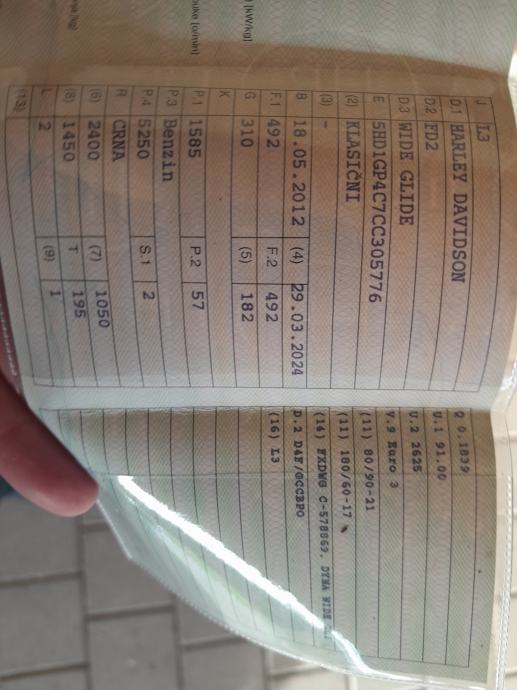 g [kW/kg]
J L3
D.1 HARLEY DAVIDSON
D.2 FD2
D.3 WIDE GLIDE
E 5HD1GP4C7CC305776
(2) KLASIČNI
(3) -
B 18.05.2012 (4) 29.03.2024
F.1 492 F.2 492
G 310 (5) 182
K
P.1 1585 P.2 57
P.3 Benzin
P.4 5250 S.1 2
R CRNA
(6) 2400 (7) 1050
(8) 1450 T 195
L 2 (9) 1
(13)
Q 0.1839
U.1 91.00
U.2 2625
V.9 Euro 3
(11) 80/90-21
(11) 180/60-17
(14) FXDWG C-578869, DYNA WIDE
D.2
(16) L3